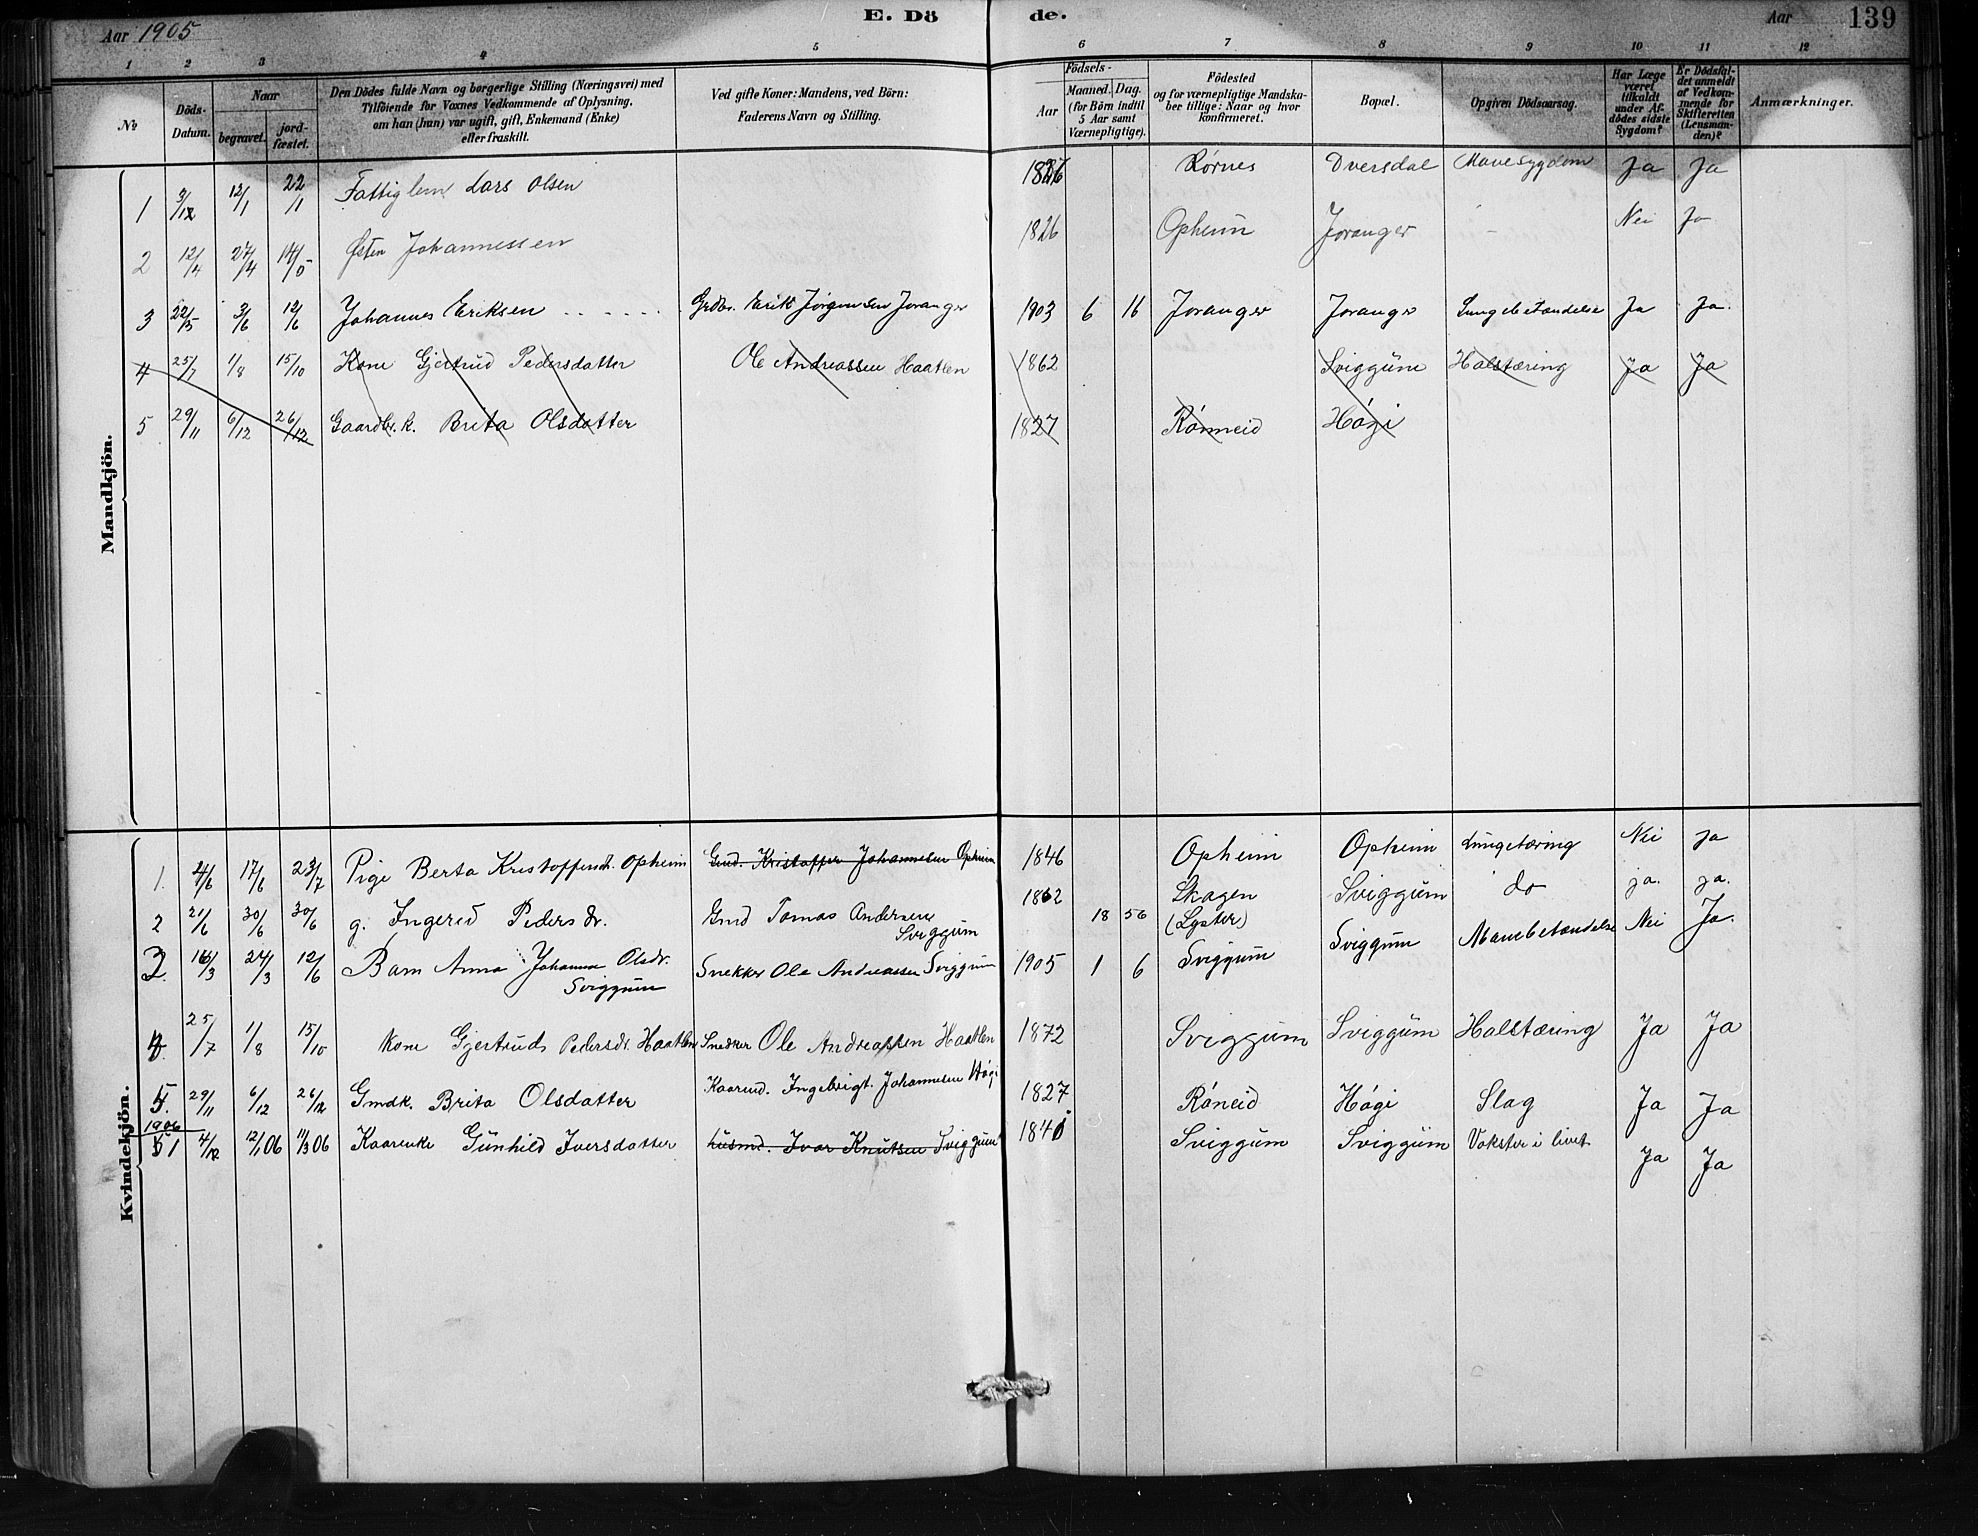 Aar 1905 E. Dö de. Aar 139
1 2 3 4 5 6 7 8 9 10 11 12
№
Döds-Datum.
Naar
begravet. jordfæstet.
Den Dödes fulde Navn og borgerlige Stilling (Næringsvei) med
Tilföiende for Voxnes Vedkommende af Oplysning,
om han (hun) var ugift, gift, Enkemand (Enke)
eller fraskilt.
Ved gifte Koner: Mandens, ved Börn:
Faderens Navn og Stilling.
Födsels-
Aar Maaned. Dag.
(for Börn indtil
5 Aar samt
Værnepligtige).
Födested
og for værnepligtige Mandska-
ber tillige: Naar og hvor
konfirmeret.
Bopæl.
Opgiven Dödsaarsag.
Har Læge
været
tilkaldt
under Af-
dödes sidste
Sygdom?
Er Dödsfal-
det anmeldt
af Vedkom-
mende for
Skifteretten
(Lensman-
den)?
Anmærkninger.
Mandkjön.
1 3/12 12/1 22/1 Fattiglem Lars Olsen Rørnes Dversdal Mavesygdom Ja Ja
2 12/4 27/4 14/5 Østen Johannessen 1826 Opheim Joranger - Nei Ja
3 22/5 3/6 12/6 Johannes Eriksen . . . . . . Grdbr. Erik Jørgensen Joranger 1903 6 16 Joranger Joranger Lungebetændelse Ja Ja.
4 25/7 1/8 15/10 Kone Gjertrud Pedersdatter Ole Andreassen Haatlen 1862 Sviggum Halstæring Ja Ja
5 29/11 6/12 26/12 Gaardbr. k. Brita Olsdatter 1827 Rønneid Høgi
Kvindekjön.
1. 4/6 17/6 23/7 Pige Berta Kristoffersdr. Opheim Gmd. Kristoffer Johannesen Opheim 1846 Opheim Opheim Lungetæring Nei Ja
2 21/6 30/6 30/6 g. Ingerid Pedersdr. Gmd Tomas Andersen Sviggum 1862 18 56 Skagen (Lyster) Sviggum do ja. ja.
3. 16/3 24/3 12/6 Barn Anna Johanna Olsdr. Sviggum Snekker Ole Andreassen Sviggum 1905 1 6 Sviggum Sviggum Mavebetændelse Nei Ja.
4 25/7 1/8 15/10 Kone Gjertrud Pedersdr. Haatlen Snedker Ole Andreassen Haatlen 1872 Sviggum Sviggum Halstæring Ja Ja
5. 29/11 6/12 26/12 Gmdk. Brita Olsdatter Kaarmd. Ingebrigt Johannesen Høgi 1827 Røneid Høgi Slag Ja Ja
1906
1 4/12 12/1 06 11/3 06 Kaarenke Gunhild Iversdatter husmd. Ivar Knutsen Sviggum Sviggum Sviggum Vokster i livet Ja Ja